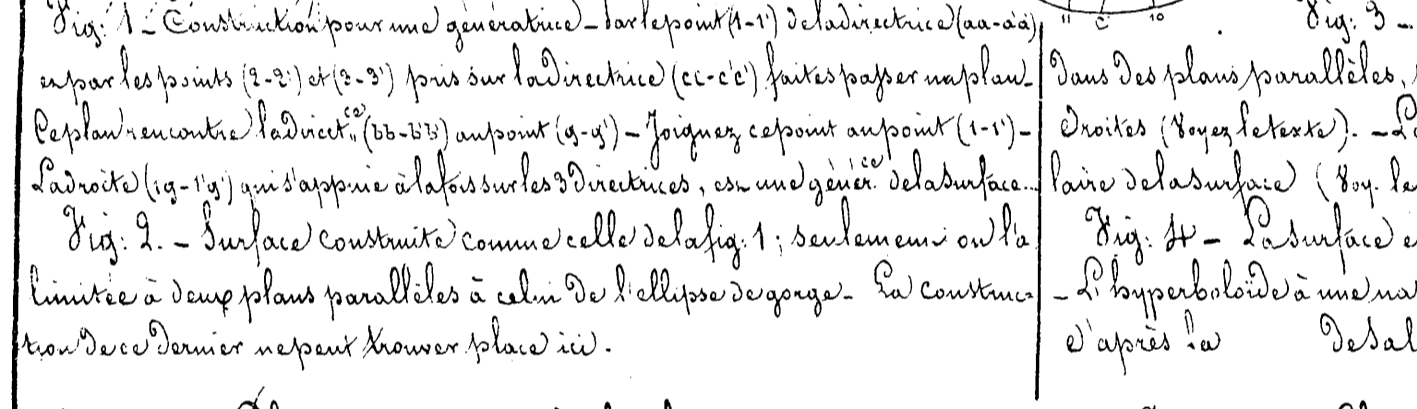 Fig: 1 – Construction pour une génératrice – Par le point (1-1') de la directrice (aa-a'a')
et par les points (2-2') et (3-3') pris sur la directrice (cc-c'c') faites passer un plan –
Ce plan rencontre la direct.ce (bb-b'b') au point (g-g') – Joignez ce point au point (1-1') –
La droite (1g-1'g') qui s'appuie à la fois sur les 3 directrices, est une génér.ice de la surface...
Fig: 2. – Surface construite comme celle de la fig: 1; seulement on l'a
limitée à deux plans parallèles à celui de l'ellipse de gorge – La construc=
tion de ce dernier ne peut trouver place ici.
11 c 10
Fig: 3 –
dans des plans parallèles,
droites (Voyez le texte). –
laire de la surface (Voy. le
Fig: 4 – La surface
– L'hyperboloïde à une na
d'après la de Sal